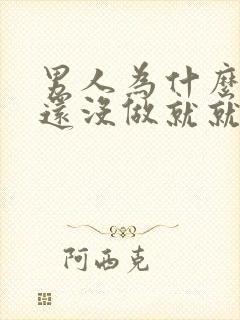 男人為什麼
還沒做就就
阿西克